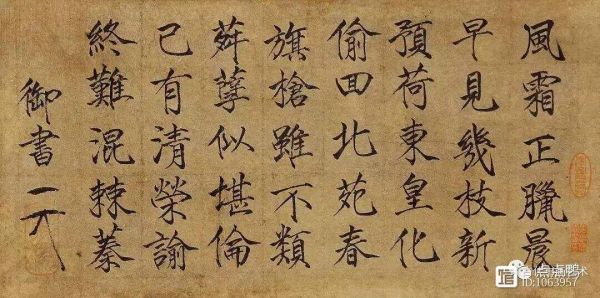 風霜正臘晨
早見幾枝新
預荷東皇化
偷回北苑春
旗槍雖不類
荈孽似堪倫
已有清榮諭
終難混棘蓁
御書
ID:1063957